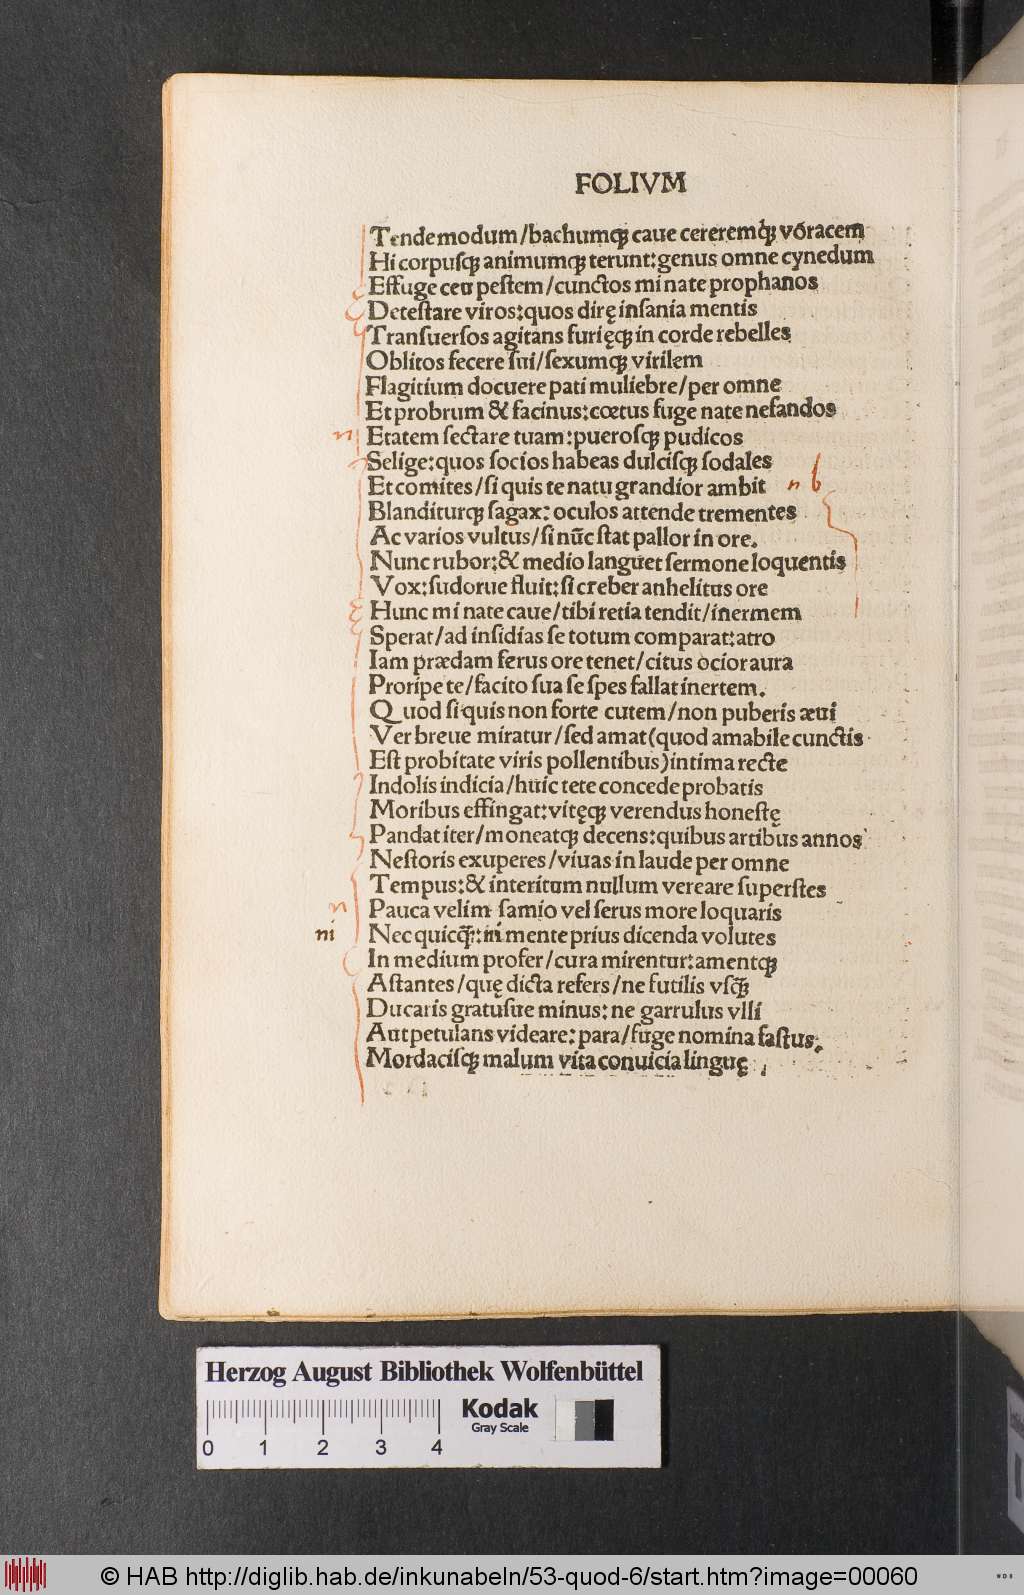 FOLIVM
Tende modum/bachumqꝫ caue cereremqꝫ vōracem
Hi corpuſqꝫ animumqꝫ terunt:genus omne cynedum
Effuge ceu peſtem/cunctos mi nate prophanos
Deteſtare viros:quos dirę inſania mentis
Tranſuerſos agitans furięqꝫ in corde rebelles
Oblitos fecere ſui/ſexumqꝫ virilem
Flagitium docuere pati muliebre/per omne
Et probrum & facinus:cœtus fuge nate nefandos
n Etatem ſectare tuam:pueroſqꝫ pudicos
Selige:quos ſocios habeas dulciſqꝫ ſodales
Et comites/ſi quis te natu grandior ambit n b
Blanditurqꝫ ſagax: oculos attende trementes
Ac varios vultus/ſi nūc ſtat pallor in ore.
Nunc rubor:& medio languet ſermone loquentis
Vox:ſudorue fluit:ſi creber anhelitus ore
Hunc mi nate caue/tibi retia tendit/inermem
Sperat/ad inſidias ſe totum comparat:atro
Iam prædam ferus ore tenet/citus ocior aura
Proripe te/facito ſua ſe ſpes fallat inertem.
Quod ſi quis non forte cutem/non puberis æui
Ver breue miratur/ſed amat(quod amabile cunctis
Eſt probitate viris pollentibus)intima recte
Indolis indicia/huic tete concede probatis
Moribus effingat:vitęqꝫ verendus honeſtę
Pandat iter/moneatqꝫ decens:quibus artibus annos
Neſtoris exuperes/viuas in laude per omne
Tempus:& interitum nullum vereare ſuperſtes
n Pauca velim ſamio vel ſerus more loquaris
ni Nec quicq̄ꝫ: ni mente prius dicenda volutes
In medium profer/cura mirentur:amentqꝫ
Aſtantes/quę dicta refers/ne futilis vſq̄ꝫ
Ducaris gratuſue minus: ne garrulus vlli
Aut petulans videare: para/fuge nomina faſtus.
Mordaciſqꝫ malum vita conuicia linguę
Herzog August Bibliothek Wolfenbüttel
0 1 2 3 4
Kodak
Gray Scale
© HAB http://diglib.hab.de/inkunabeln/53-quod-6/start.htm?image=00060